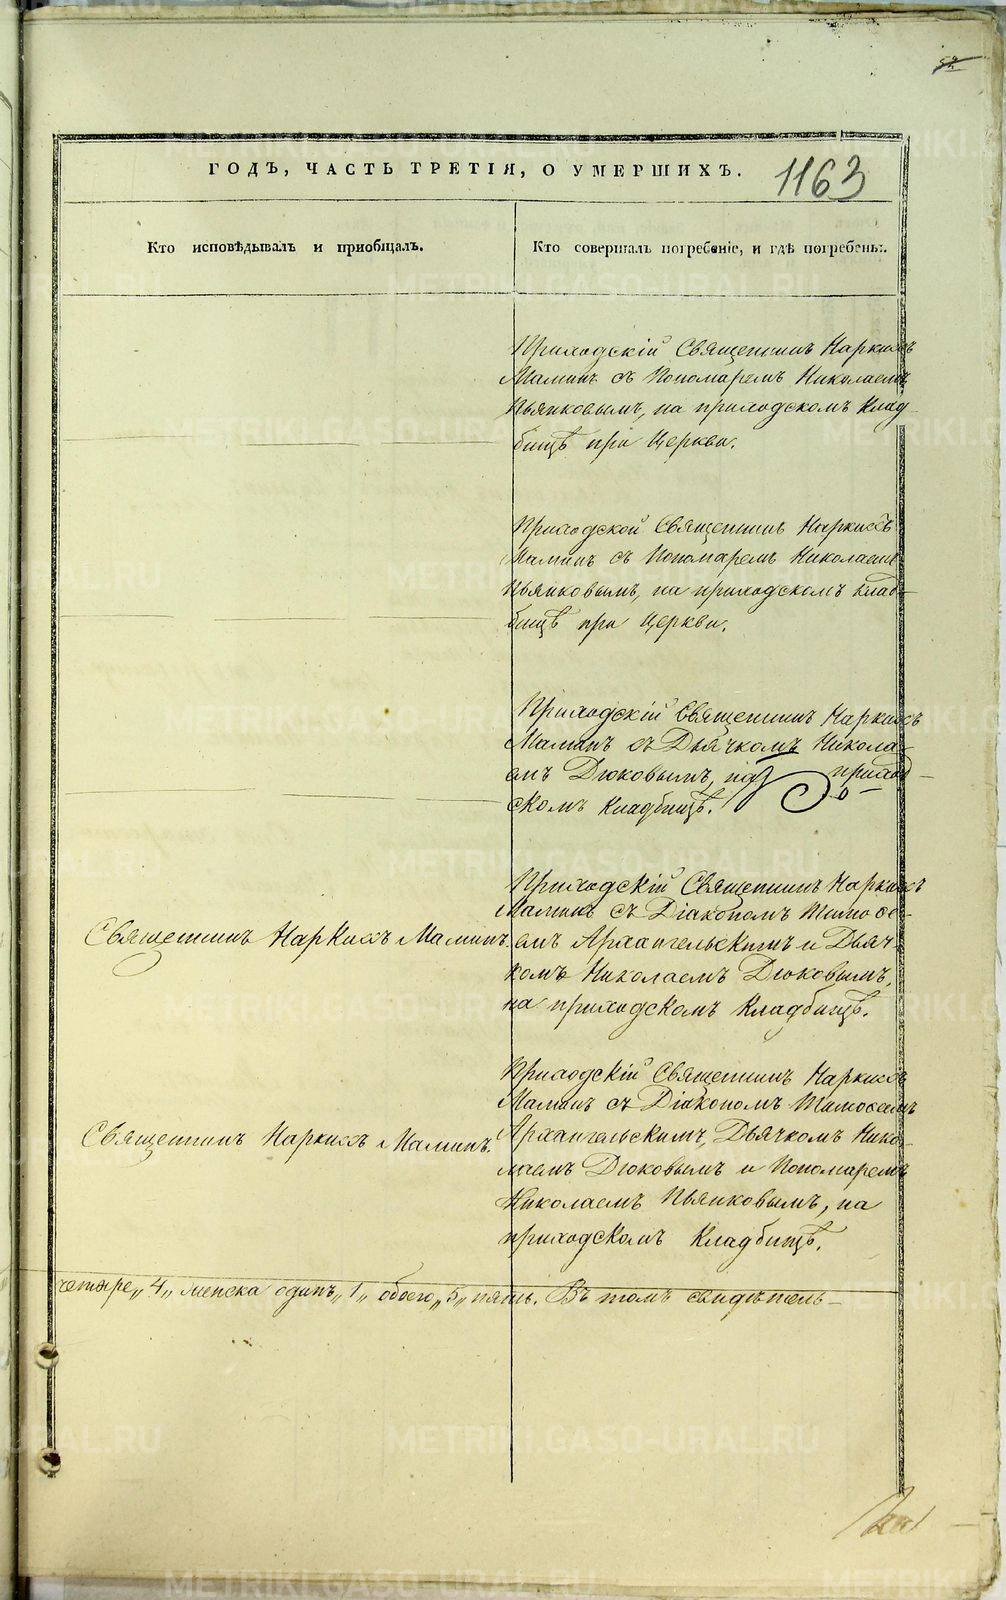 ГОДЪ, ЧАСТЬ ТРЕТІЯ, О УМЕРШИХЪ.
1163
Кто исповѣдывалъ и пріобщалъ.
Кто совершалъ погребеніе, и гдѣ погребены.
Приходскій Священникъ Наркиссъ
Маминъ съ Пономаремъ Николаемъ
Пьянковымъ, на приходскомъ клад-
бищѣ при Церкви.
Приходской Священникъ Наркиссъ
Маминъ съ Пономаремъ Николаемъ
Пьянковымъ, на приходскомъ клад-
бищѣ при Церкви.
Приходскій Священникъ Наркиссъ
Маминъ съ Дьячкомъ Никола-
емъ Дюковымъ, на приход-
скомъ кладбищѣ.
Священникъ Наркиссъ Маминъ.
Приходскій Священникъ Наркиссъ
Маминъ съ Діакономъ Тимофе-
емъ Архангельскимъ и Дьяч-
комъ Николаемъ Дюковымъ,
на приходскомъ кладбищѣ.
Священникъ Наркиссъ Маминъ.
Приходскій Священникъ Наркиссъ
Маминъ съ Діакономъ Тимофеемъ
Архангельскимъ, Дьячкомъ Нико-
лаемъ Дюковымъ и Пономаремъ
Николаемъ Пьянковымъ, на
приходскомъ кладбищѣ.
четыре „4„ женска одинъ „1„ обоего „5„ пять. Въ томъ свидѣтель-
METRIKI.GASO-URAL.RU